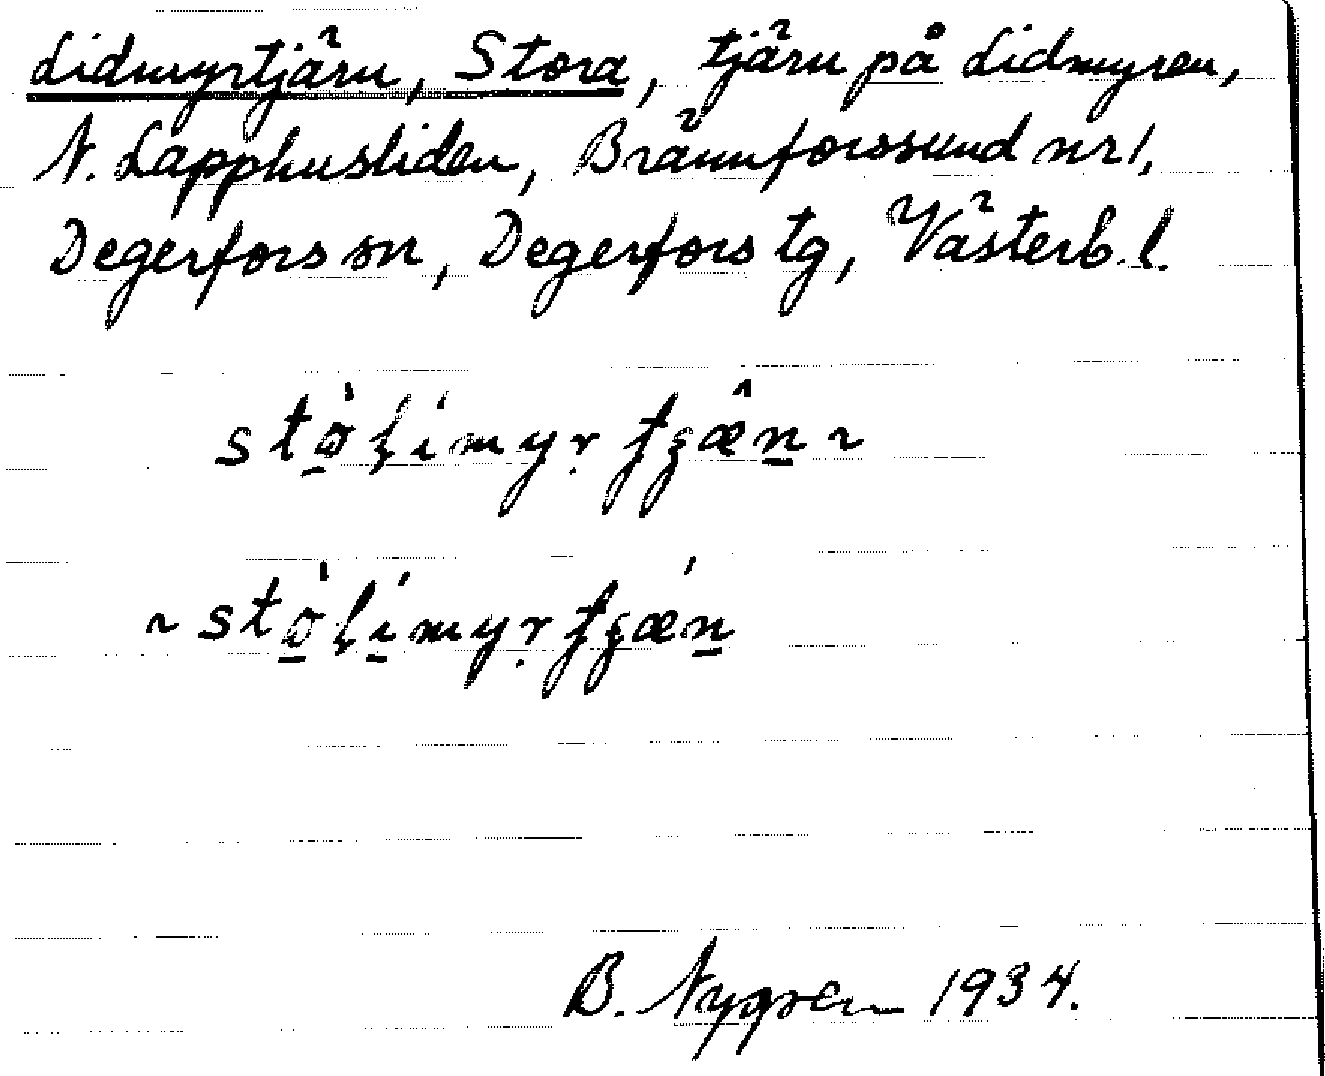 Lidmyrtjärn, Stora, tjärn på Lidmyren,
N. Lapphusliden, Brännforssund nr 1,
Degerfors sn, Degerfors tg, Västerb. l.
B. Nygren 1934.